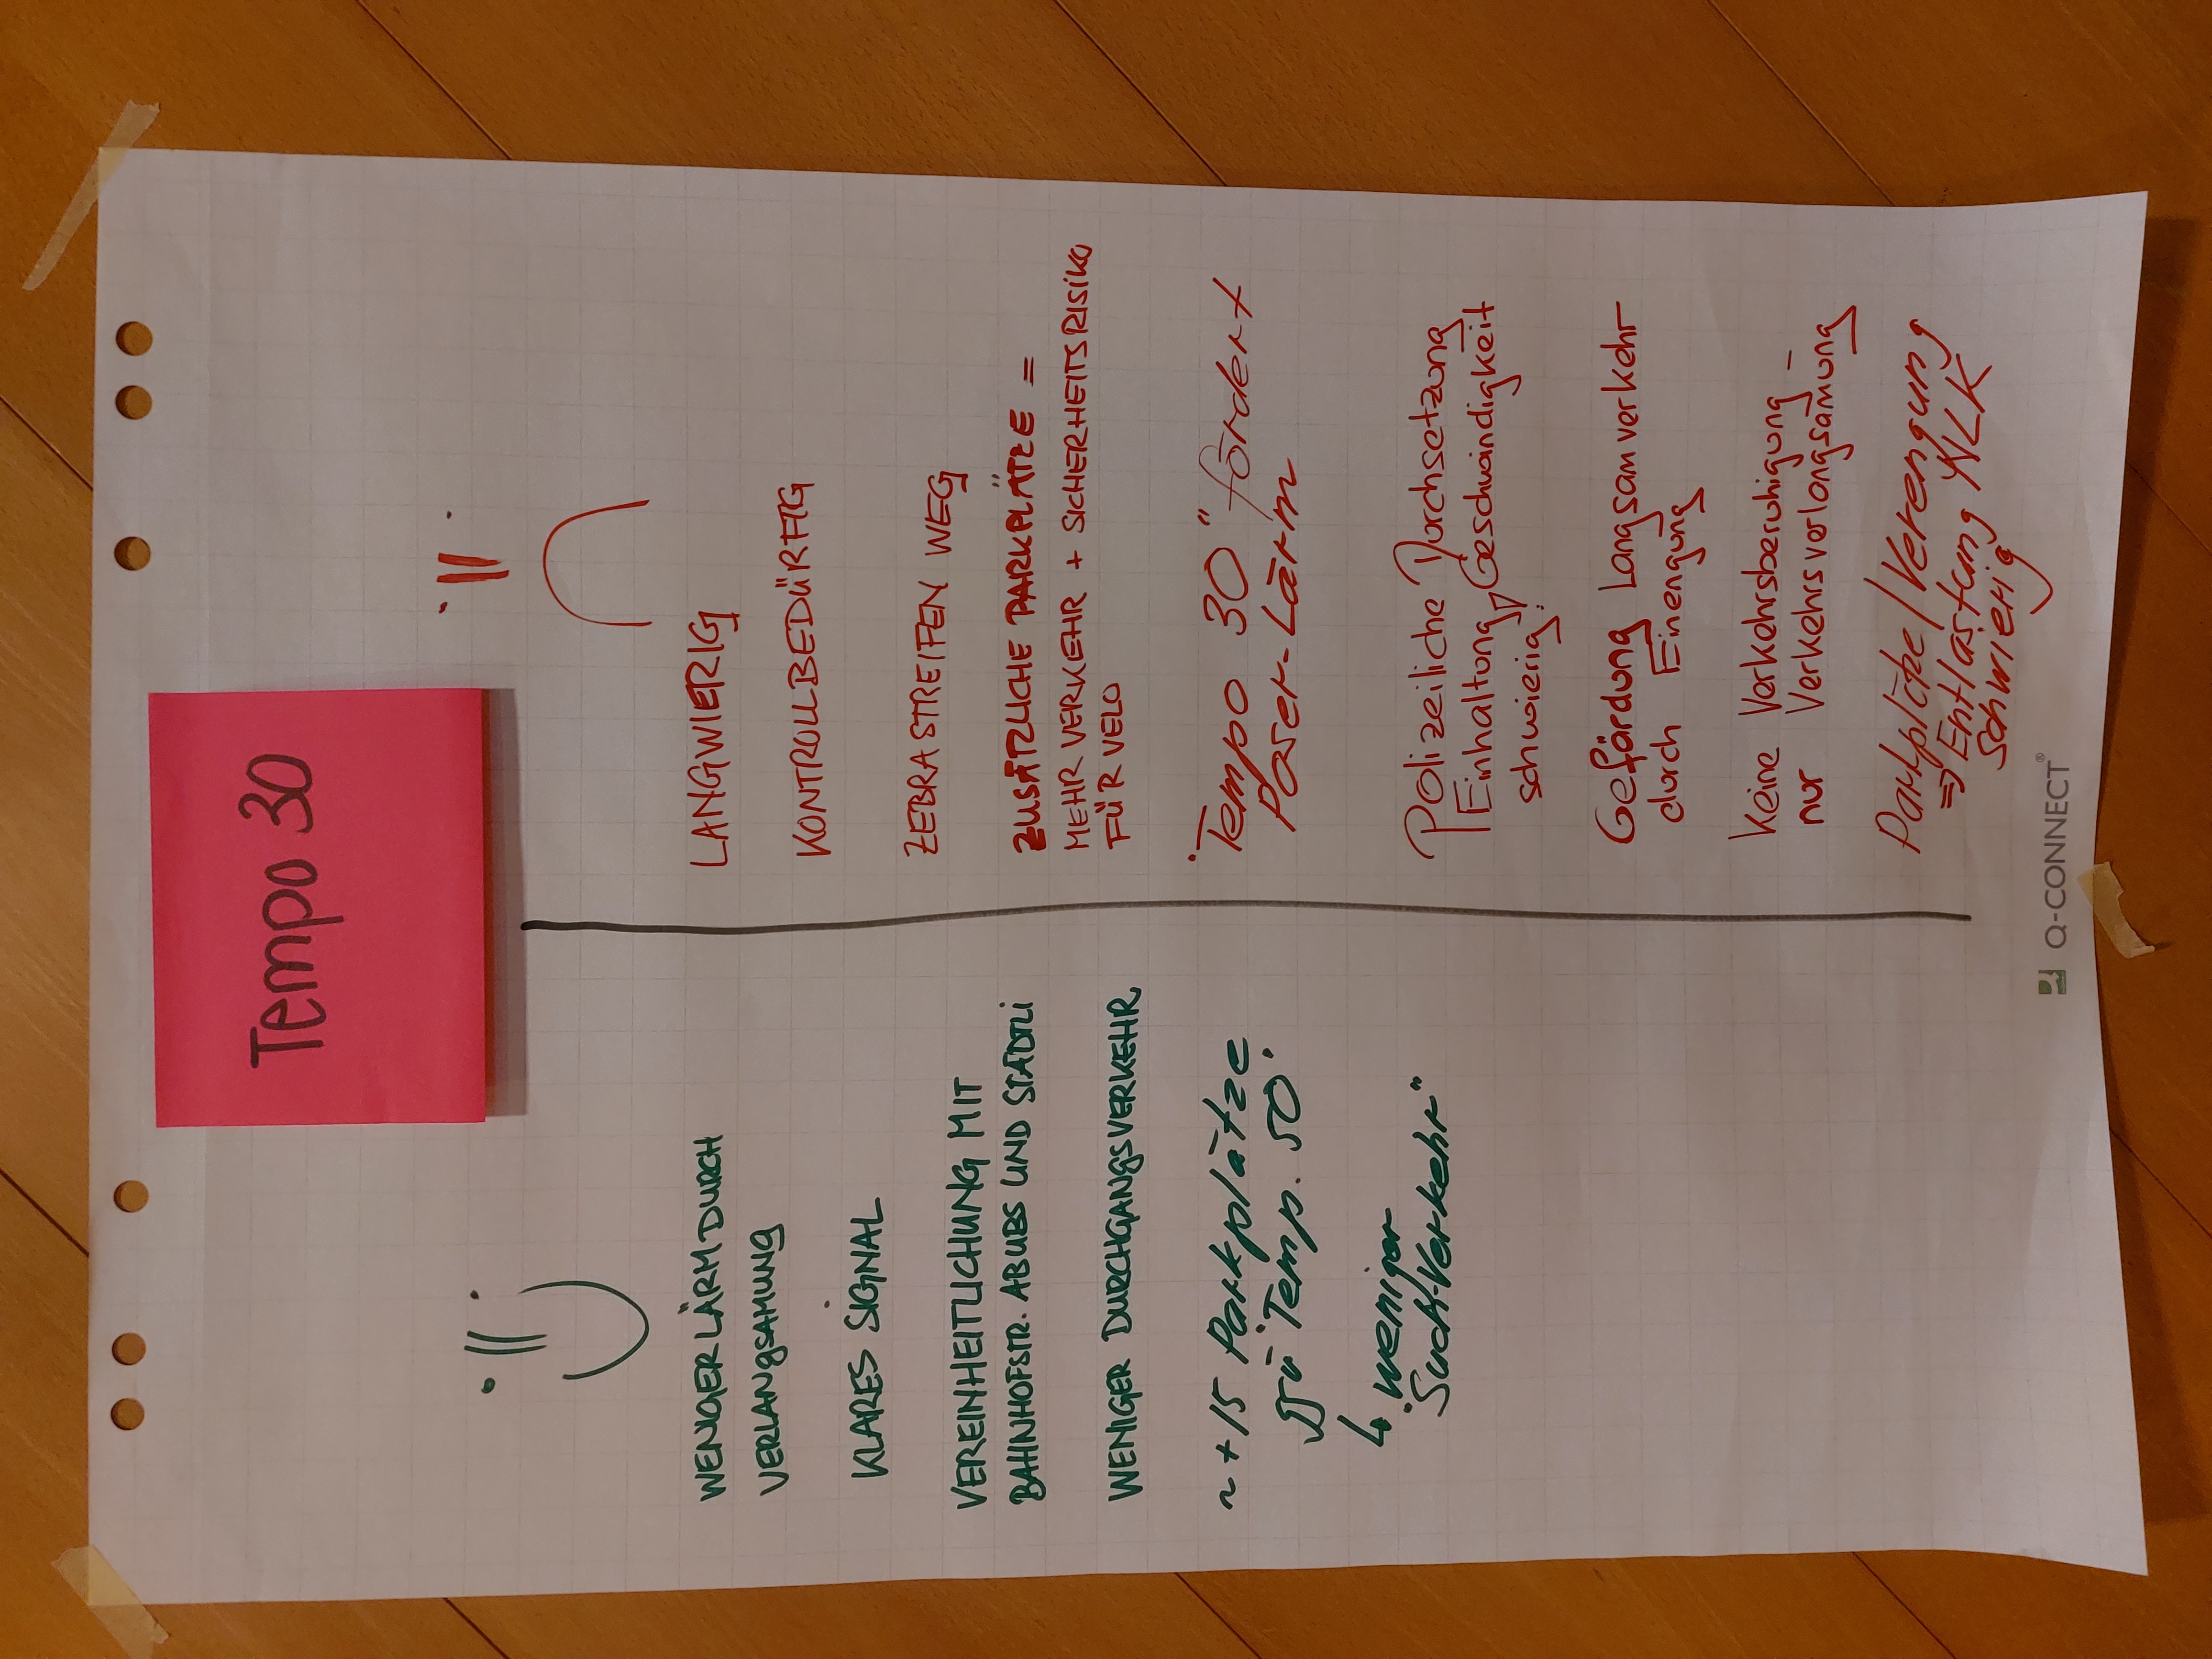 Tempo 30
WENIGER LÄRM DURCH
VERLANGSAMUNG
KLARES SIGNAL
VEREINHEITLICHUNG MIT
BAHNHOFSTR. ABUBS UND STÄDTLI
WENIGER DURCHGANGSVERKEHR
~ +15 Parkplätze
ggü "Temp. 50"
↳ weniger
"Such-Verkehr"
LANGWIERIG
KONTROLLBEDÜRFTIG
ZEBRASTREIFEN WEG
ZUSÄTZLICHE PARKPLÄTZE =
MEHR VERKEHR + SICHERHEITSRISIKO
FÜR VELO
"Tempo 30" fördert
Poser-Lärm
Polizeiliche Durchsetzung
Einhaltung Geschwindigkeit
schwierig!
Gefärdung Langsamverkehr
durch Einengung
Keine Verkehrsberuhigung –
nur Verkehrsverlangsamung
Parkplätze/Verengung
⇒ Entlastung NLK
schwierig
Q-CONNECT®